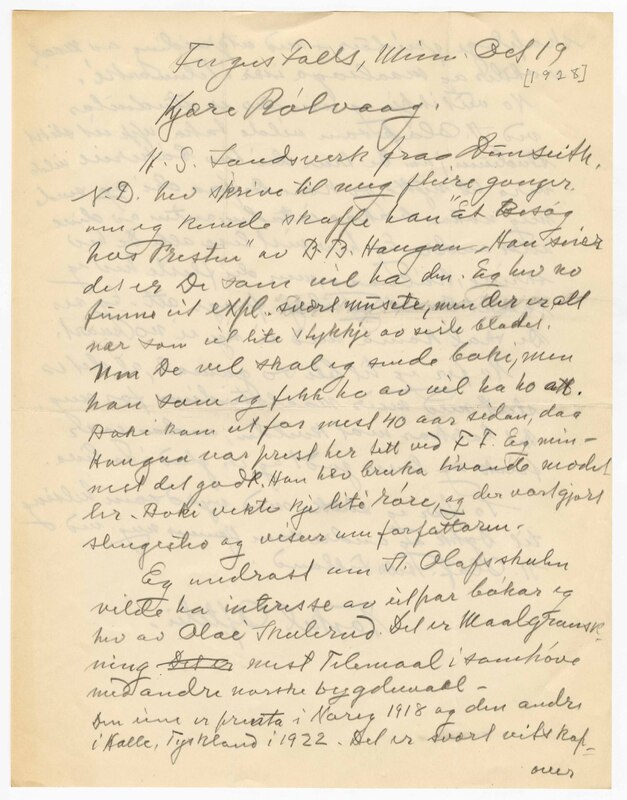 Fergus Falls, Minn. Oct 19
[1928]
Kjære Rölvaag.
K. S. Landsverk fraa Dunseith,
N.D. hev skrive til meg fleire gonger
um eg kunde skaffe han "Et Besøg
hos Presten" av B.B. Haugan. Han seier
det er De som vil ha den. Eg hev no
funne eit expl. svært musete, men der er alt
nær som eit lite stykkje av seile bladet.
Um De vil skal eg sende boki, men
han som eg fekk ho av vil ha ho att.
Boki kom ut for mest 40 aar sidan, daa
Haugan var prest her tett ved F.F. Eg min-
nest det godt. Han hev bruka livande model
ler. Boki vekte kje lite røre, og der vart gjort
slengestho og viser um forfattaren.
Eg undrast um St. Olafskuln
vilde ha interesse av eit par bökar eg
hev av Olai Skulerud. Det er Maalgransk-
ning Det er mest Telemaal i samhöve
med andre norske bygdemaal -
Den eine er prenta i Noreg 1918 og den andre
i Halle, Tyskland i 1922. Det er svært vitskap-
over